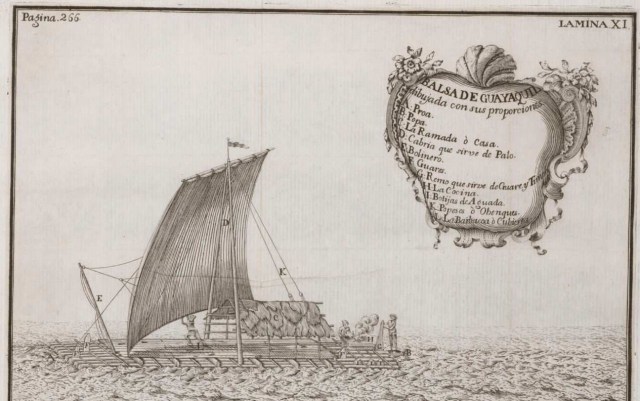 Pagina. 266
LAMINA XI
BALSA DE GUAYAQUIL
dibujada con sus proporciones
A. Proa.
B. Popa.
C. La Ramada ò Casa.
D. Cabria que sirve de Palo.
E. Bolinero.
F. Guares.
G. Remo que sirve de Guare, y Timon
H. La Cocina.
I. Botijas de Aguada.
K. Popeses ò Obenques
L. La Barbacoa ò Cubierta
D
K
E
B